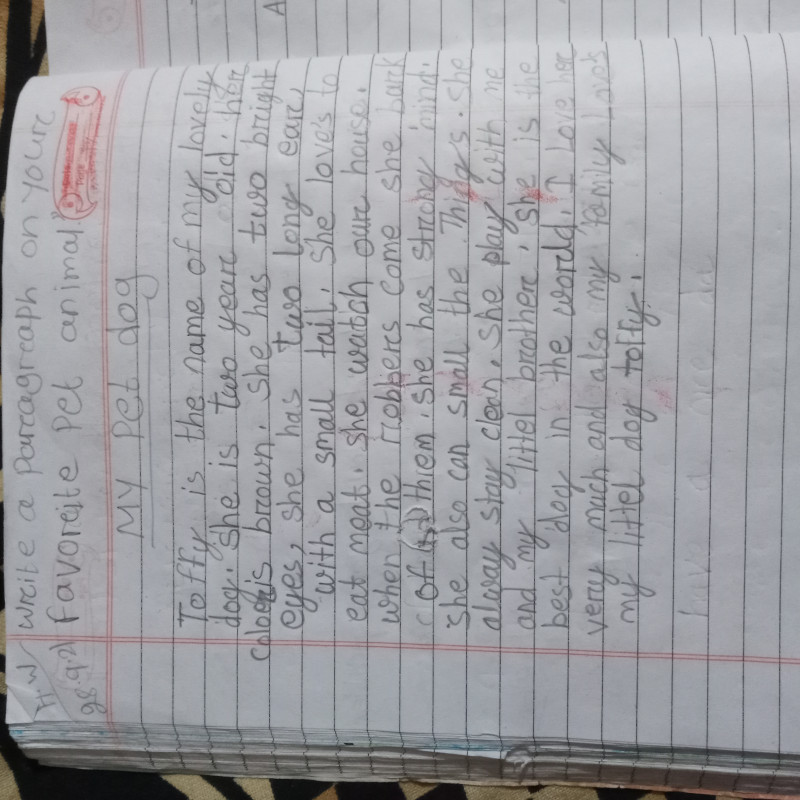 H.W Write a paragraph on your
favoraite pet animal."
MY Pet dog
Toffy is the name of my lovely
dog. She is two year old. her
color is brown. She has two bright
eyes, she has two long ear,
with a small tail. She loves to
eat meat. she watch our house.
when the robbers come she bark
of them. she has strong mind.
She also can small the Things. She
alway stay clean. She play with me
and my littel brother. she is the
best dog in the world. I Love her
very much and also my family Loves
my littel dog toffy.